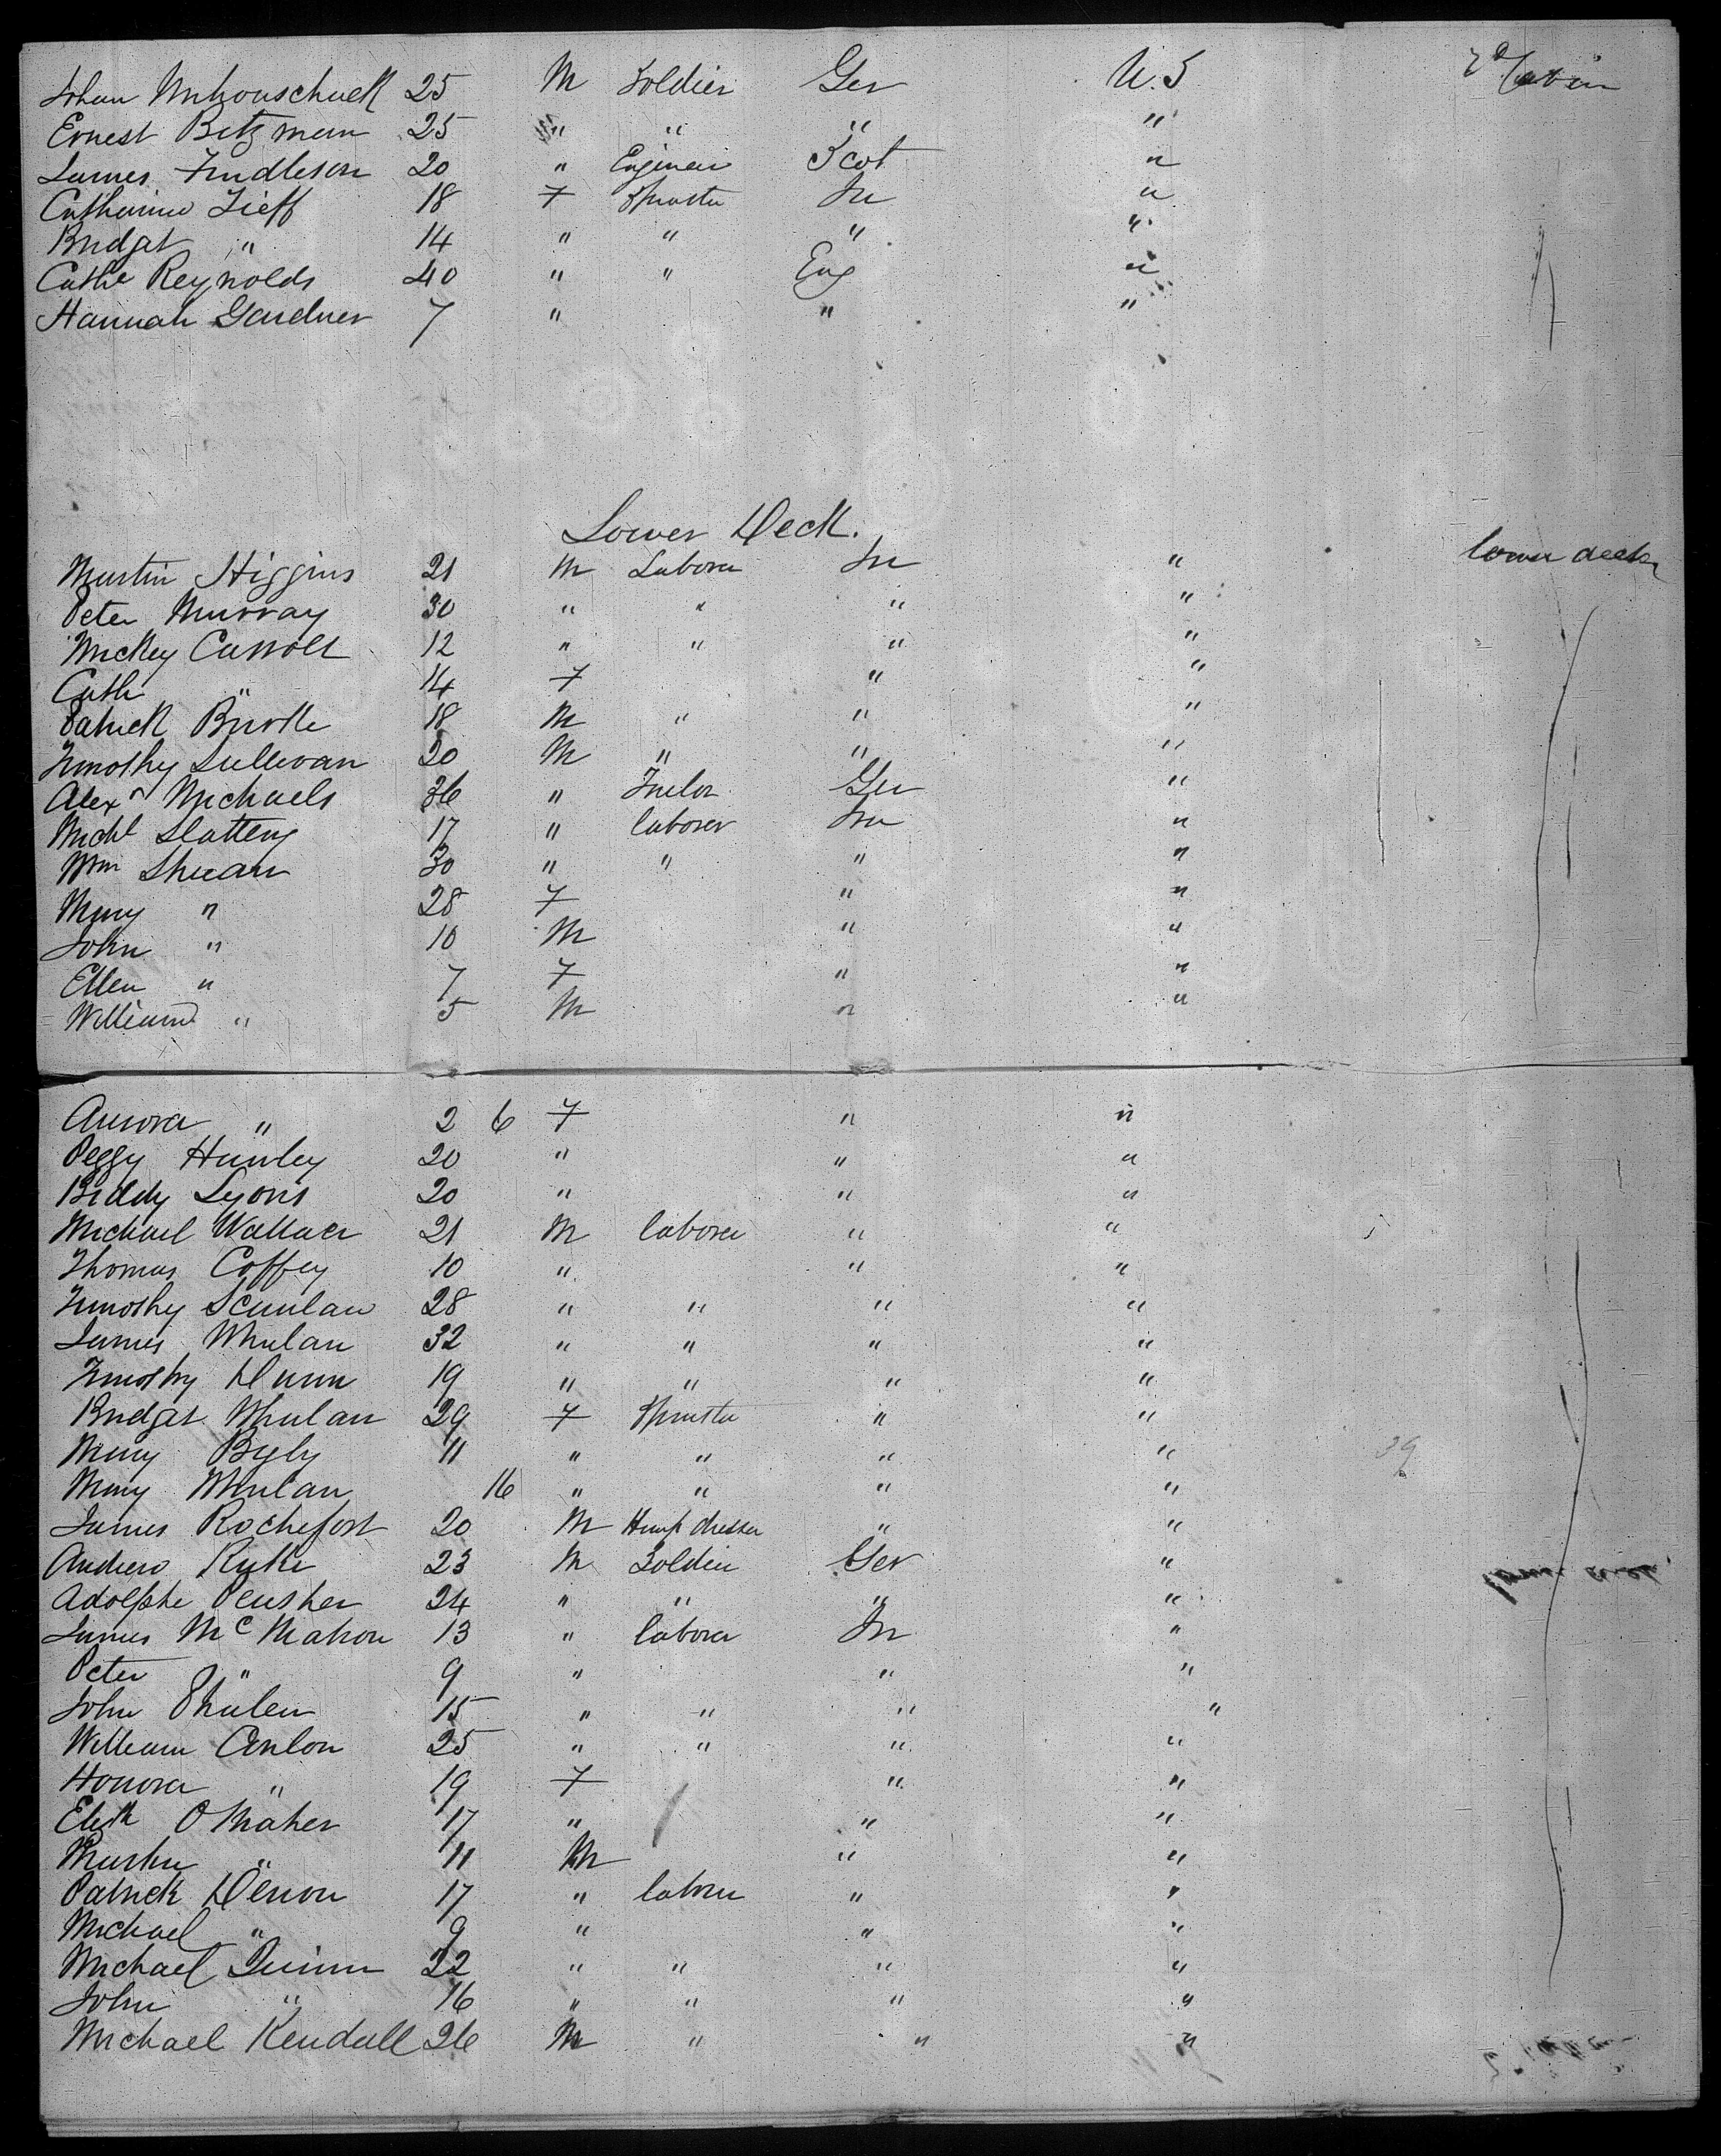 Johan 25 M Soldier Ger U.S 2d Cabin
Ernest Betzman 25 " " " "
James Findleson 20 " Engineer Scot "
Catherine 18 F Spinster Ire "
Bridget " 14 " " " "
Cathe Reynolds 40 " " Eng "
Hannah Gardner 7 " " "
Lower Deck.
Martin Higgins 21 M Laborer Ire " lower deck
Peter Murray 30 " " " "
Mickey Carroll 12 " " " "
Cath " 14 F " "
Patrick Burke 18 M " " "
Timothy Sullivan 20 M " " "
Alexr Michaels 36 " Tailor Ger "
Michl Slattery 17 " laborer Ire "
Wm Sheean 30 " " " "
Mary " 28 F " "
John " 10 M " "
Ellen " 7 F " "
William " 5 M " "
Aurora " 2 6 F " "
Peggy Hanley 20 " " "
Biddy Lyons 20 " " "
Michael Wallace 21 M laborer " "
Thomas Coffey 10 " " "
Timothy Scanlan 28 " " " "
James Whelan 32 " " " "
Timothy Dunn 19 " " " "
Bridget Whelan 29 F Spinster " "
Mary 11 " " " " 39
Mary Whelan 16 " " " "
James Rochefort 20 M Hemp dresser " "
Andrew 23 M Soldier Ger "
Adolphe Peusher 24 " " " "
James McMahon 13 " laborer Ire "
Peter " 9 " " "
John 15 " " " "
William Conlon 25 " " " "
Honora " 19 F " "
Elizth O Maher 17 " " "
Martin " 11 M " "
Patrick 17 " laborer " "
Michael " 9 " " "
Michael Quinn 22 " " " "
John " 16 " " " "
Michael Kendall 26 M " " "